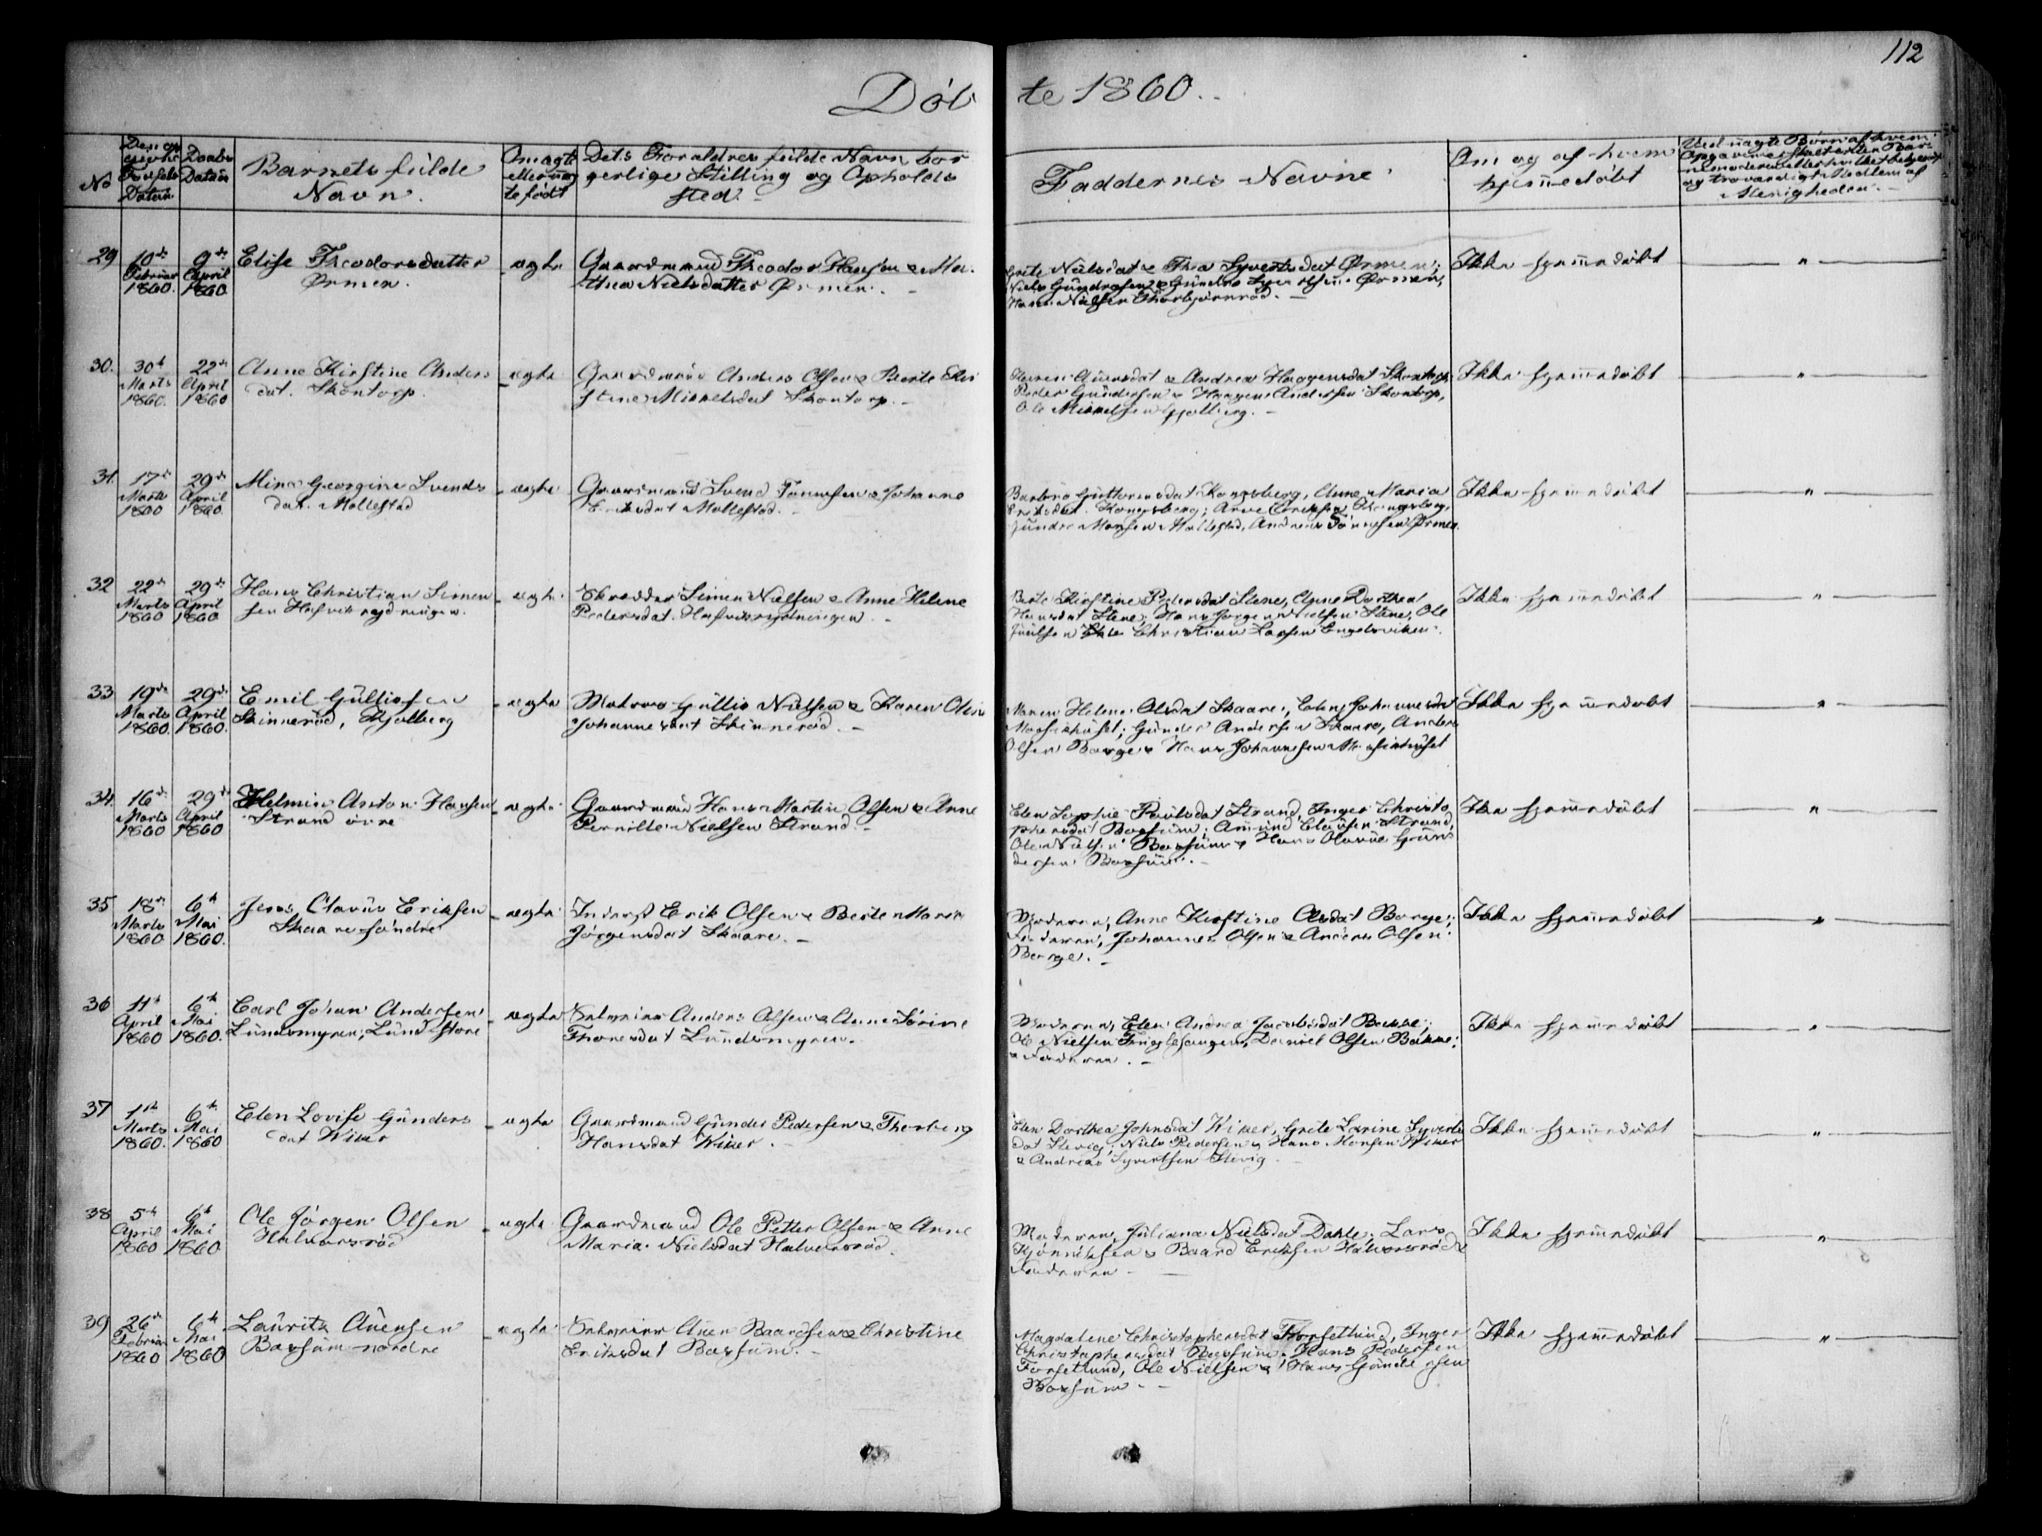 112
Döb te 1860.
No
Daabs Datum
Barnets fulde Navn.
Dets Forældres fulde Navn borgerlige Stilling og Opholdssted.
Faddernes Navne.
Om og af hvem hjemmedöbt
29
10de Februar 1860.
9de April 1860
Elise Theodorsdatter
Ørmen.
ægte
Gaardmand Theodor Hansen & Ma-
thea Nielsdatter Ørmen.
Grete Nielsdat & Thea Syvertsdat Ørmen;
Ikke hjemmedöbt
30.
30te Marts 1860.
22de April 1860
Anne Kirstine Anders
dat. Skontorp.
ægte
Anders Olsen & Berte Kir
stine Mikkelsdat Skontorp.
Peder Gundersen & Haagen Andersen Skontorp,
Ole Mikkelsen Kjølberg.
Ikke hjemmedöbt
31.
17de Marts 1860
29de April 1860.
Mina Georgine Svends
dat. Mallestad
ægte
Gaardmand Svend Tønnesen & Johanne
Eriksdat Mallestad.
Barbro Guttormsdat Kongsberg, Anne Maria
Eriksdat. Kongsberg; Arne Eriksen Kongsberg,
Gunder Monsen Mallestad, Andreas Tönnesen Ørmen
Ikke hjemmedöbt
32
22de Marts 1860
29de April 1860
Hans Christian Simen
sen
ægte
Skredder Simen Nielsen & Anne Helene
Pedersdat.
Berte Kirstine Pedersdat Stene, Anne Dorthea
Hansdat Stene; Hans Jørgen Nielsen Stene, Ole
Christian Larsen Engelsviken.
Ikke hjemmedöbt
33
19de Marts 1860.
29de April 1860.
Emil Gulliksen
Skinneröd, Kjølberg
ægte
Matros Gullik Nielsen & Karen Oline
Johannesdat Skinneröd.
Maren Helene Olsdat Skaare, Elen Johannesdat
Gunder Andersen Skaare, Anders
Olsen Borge & Hans Johannesen
Ikke hjemmedöbt
34.
16de Marts 1860
29de April 1860
Helmin Anton Hansen
Strand övre
ægte
Gaardmand Hans Martin Olsen & Anne
Pernille Nielsen Strand.
Elen Sophie Paulsdat Strand, Inger Christo
phersdat Borsum; Amund Elefsen Strand,
Ole Nielsen Borsum & Hans Olaus Gun
dersen Borsum.
Ikke hjemmedöbt
35
18de Marts 1860
6te Mai 1860.
Jens Olavus Eriksen
Skaare söndre
ægte
Inderst Erik Olsen & Berte Marie
Jørgensdat Skaare.
Moderen, Anne Kirstine Olsdat Borge;
Faderen, Johannes Olsen & Anders Olsen
Borge.
Ikke hjemmedöbt
36
11te April 1860
6te Mai 1860.
Carl Johan Andersen
Lundsmyren, Lund store
ægte
Selveier Anders Olsen & Anne Sörine
Thoresdat Lundsmyren.
Moderen, Elen Andrea Jacobsdat Bakke;
Ole Nielsen Fuglesangen, Daniel Olsen Bakke;
& Faderen.
Ikke hjemmedöbt
37
1ste Marts 1860.
6te Mai 1860
Elen Lovise Gunders
dat Wiker
ægte
Gaardmand Gunder Pedersen & Thorberg
Hansdat Wiker.
Elen Dorthea Johnsdat Wiker, Grete Larine Syverts
dat Slevig; Niels Pedersen & Hans Monsen Wiker
& Andreas Syvertsen Slevig.
Ikke hjemmedöbt
38
5te April 1860
6te Mai 1860
Ole Jörgen Olsen
Halvorsröd
ægte
Gaardmand Ole Petter Olsen & Anne
Maria Nielsdat Halvorsröd.
Moderen, Juliana Nielsdat Dahle; Lars
& Baard Eriksen Halvorsröd &
Faderen
Ikke hjemmedöbt
39
26de Februar 1860
6te Mai 1860
Lauritz Auensen
Borsum nordre
ægte
Selveier Auen Baardsen & Christine
Eriksdat Borsum.
Magdalene Christophersdat Thorsetlund, Inger
Christophersdat Borsum, Hans Pedersen
Torsetlund, Ole Nielsen & Hans Gundersen
Borsum
Ikke hjemmedöbt